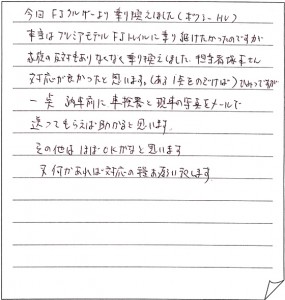 今回 FJクルーザーより乗り換えました(ハリアーHV)
本当はプレミアモデル FJトレイルに乗り継げたかったのですが
家族の反対もありなくなく乗り換えしました 担当者 さん
対応が良かったと思います。(ある1点をのぞけば)
一点 納車前に車検書と現車の写真をメールで
送ってもらえば助かると思います
その他は ほぼOKかなと思います
又何かあれば対応の程お願い致します